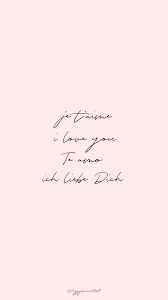 je t'aime
i love you
Te amo
ich liebe Dich